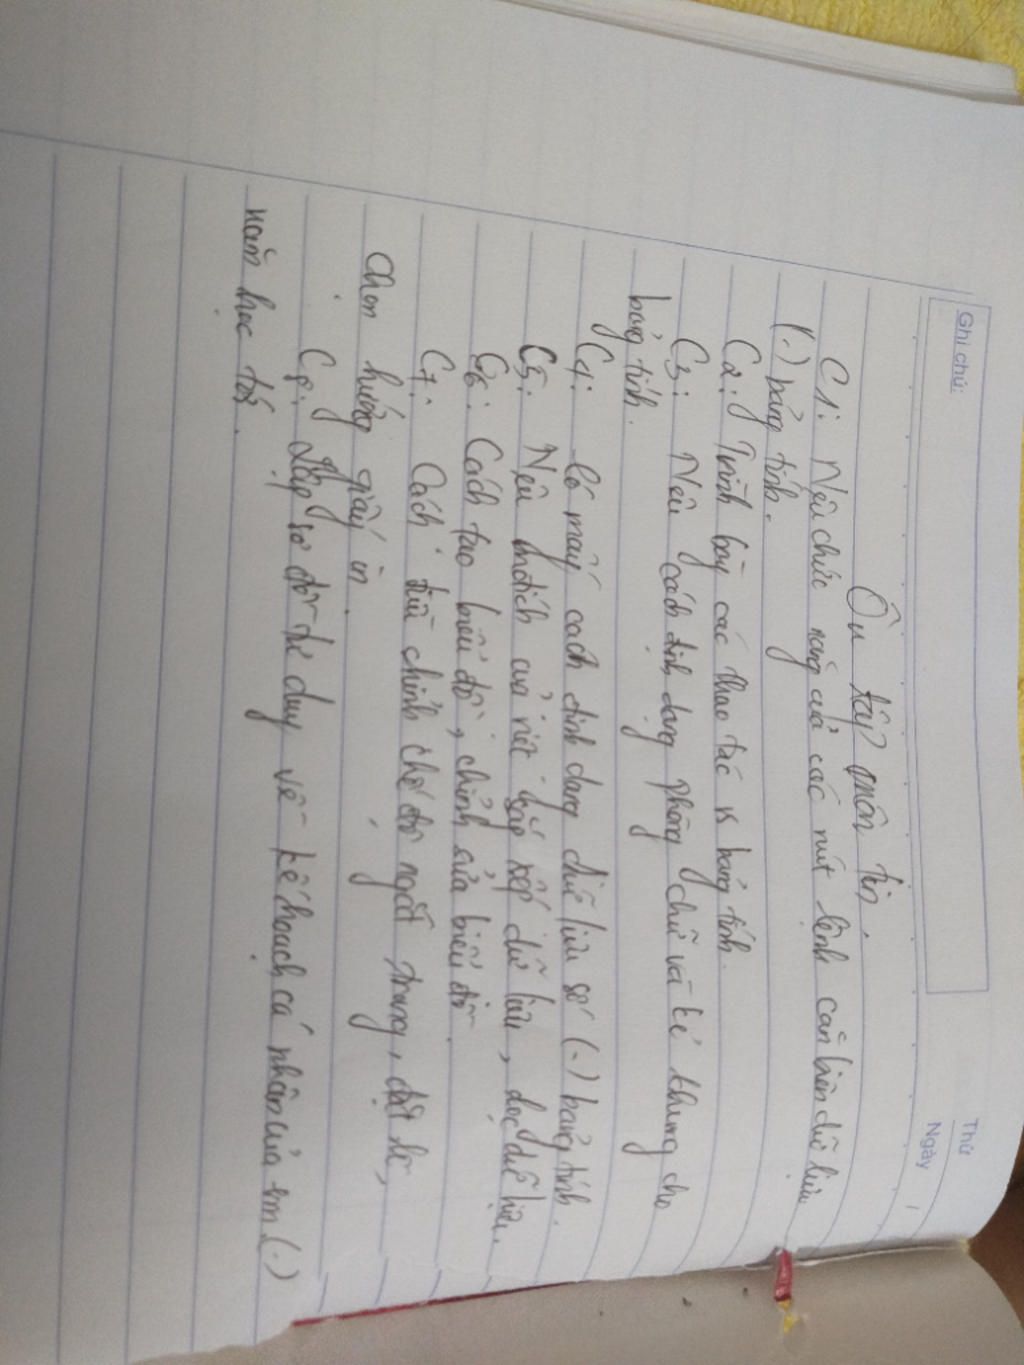 Ghi chú:
Thứ
Ngày
Ôn tập môn tin.
C1: Nêu chức năng của các nút lệnh căn biên dữ liệu
(.) bảng tính.
C2: Trình bày các thao tác vs bảng tính.
C3: Nêu cách định dạng phông chữ và kẻ khung cho
bảng tính.
C4: Có mấy cách định dạng dữ liệu số (.) bảng tính.
C5: Nêu mđích của việc sắp xếp dữ liệu, lọc dữ liệu.
C6: Cách tạo biểu đồ, chỉnh sửa biểu đồ.
C7: Cách điều chỉnh chế độ ngắt trang, đặt lề,
chọn hướng giấy in.
C8: Lập sơ đồ tư duy về kế hoạch cá nhân của em (.)
năm học tới.